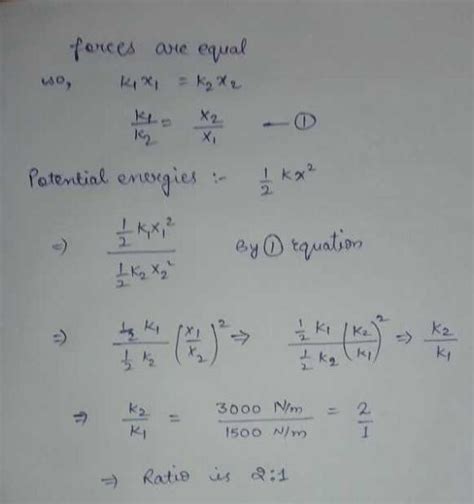 forces are equal
so, k₁x₁ = k₂x₂
k₁/k₂ = x₂/x₁ — ①
Potential energies :- 1/2 kx²
⇒ (1/2 k₁x₁²)/(1/2 k₂x₂²) By ① equation
⇒ (1/2 k₁)/(1/2 k₂) (x₁/x₂)² ⇒ (1/2 k₁)/(1/2 k₂) (k₂/k₁)² ⇒ k₂/k₁
⇒ k₂/k₁ = 3000 N/m / 1500 N/m = 2/1
⇒ Ratio is 2:1